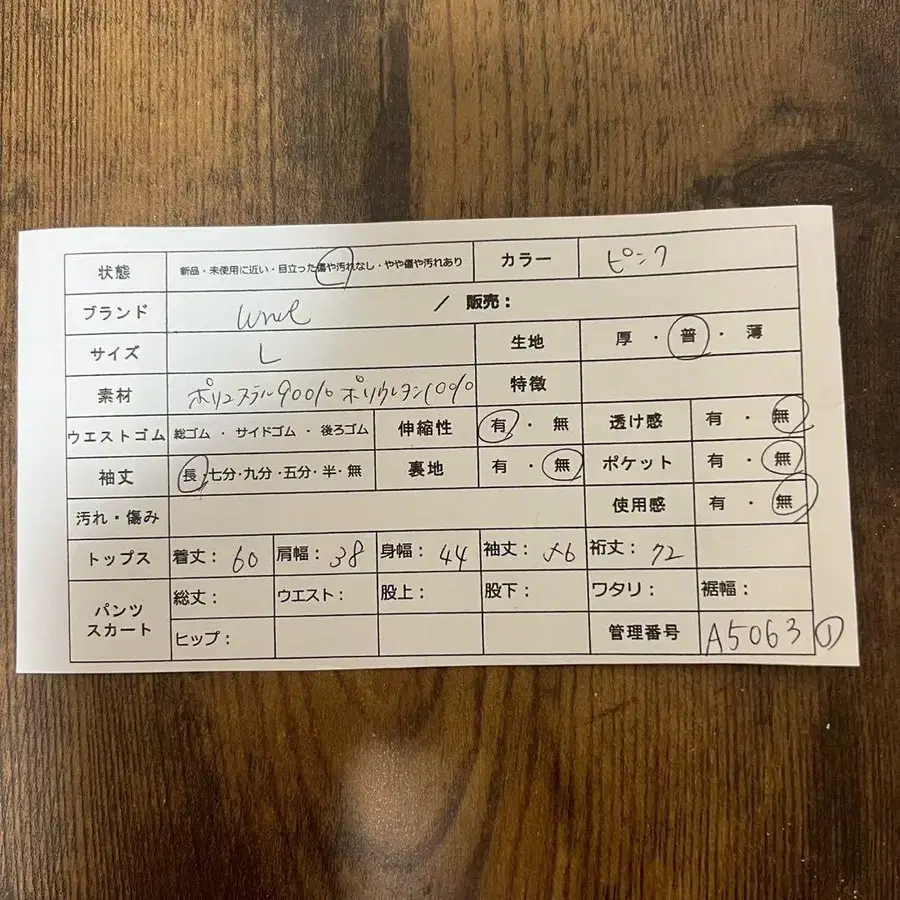 状態 新品・未使用に近い・目立った傷や汚れなし・やや傷や汚れあり カラー ピンク
ブランド / 販売：
サイズ L 生地 厚 ・ 普 ・ 薄
素材 ポリエステル90% ポリウレタン10% 特徴
ウエストゴム 総ゴム ・ サイドゴム ・ 後ろゴム 伸縮性 有 ・ 無 透け感 有 ・ 無
袖丈 長・七分・九分・五分・半・無 裏地 有 ・ 無 ポケット 有 ・ 無
汚れ・傷み 使用感 有 ・ 無
トップス 着丈：60 肩幅：38 身幅：44 袖丈：56 裄丈：72
パンツ スカート 総丈： ウエスト： 股上： 股下： ワタリ： 裾幅：
ヒップ： 管理番号 A5063 ①